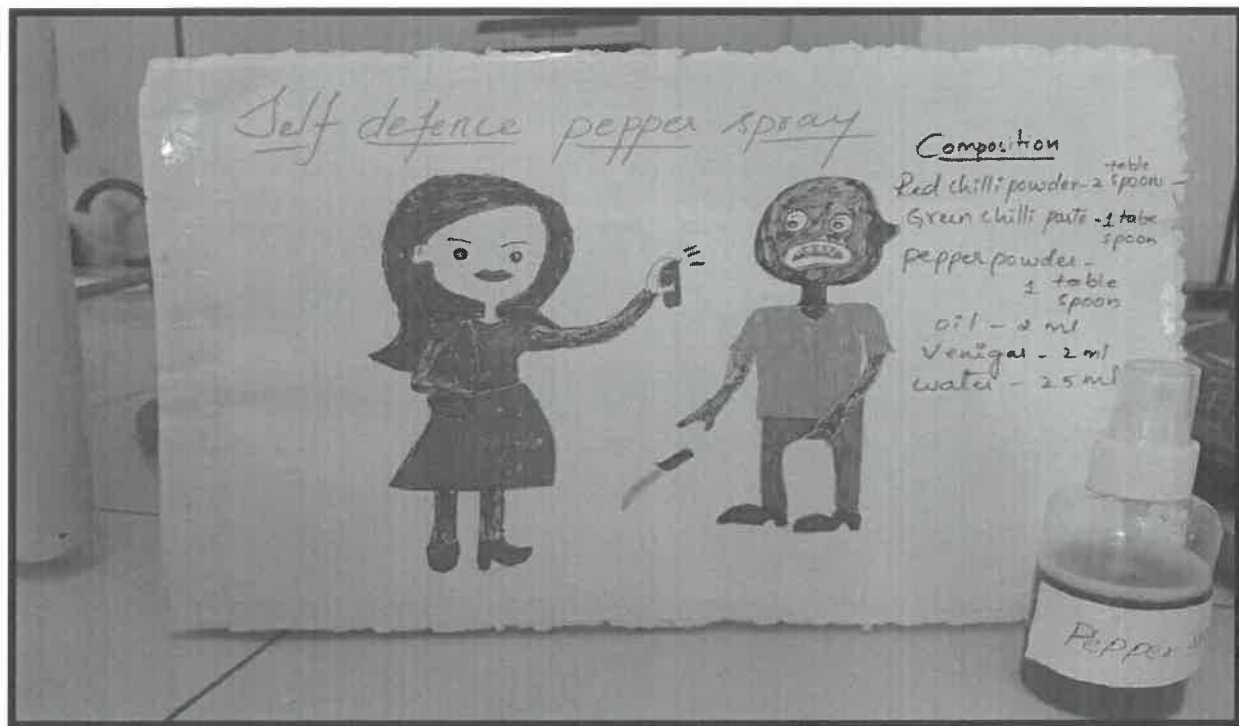 Self defence pepper spray
Composition
Red chilli powder - 2 table spoons -
Green chilli paste - 1 table spoon
pepper powder -
1 table
spoon
oil - 2 ml
Venigar - 2 ml
water - 25 ml
Pepper